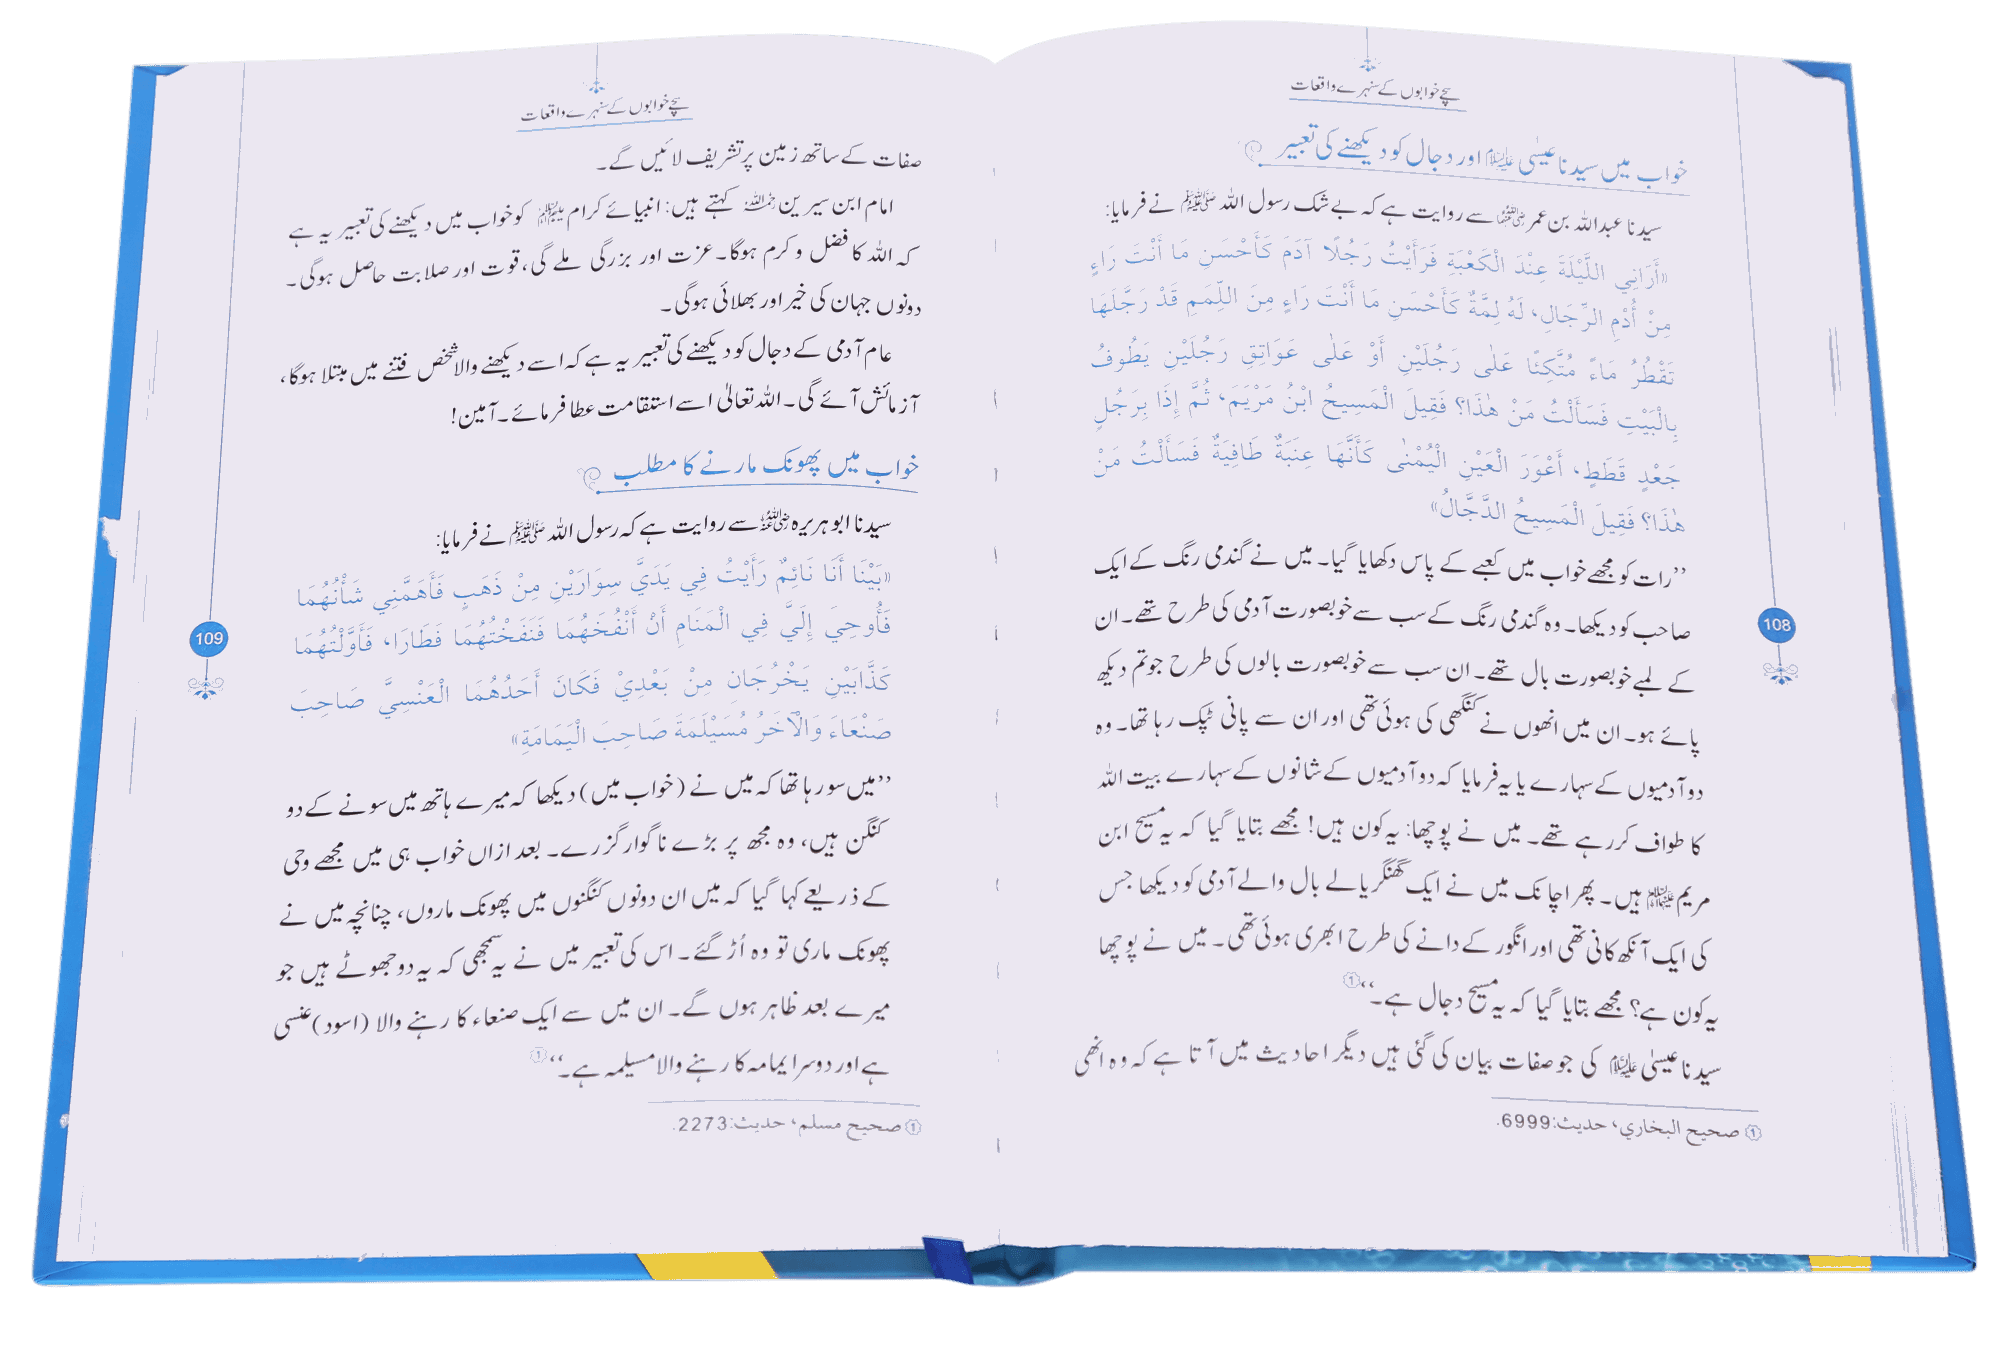 سچے خوابوں کے سنہرے واقعات
خواب میں سیدنا عیسٰی علیہ السلام اور دجال کو دیکھنے کی تعبیر
سیدنا عبداللہ بن عمر رضی اللہ عنہما سے روایت ہے کہ بے شک رسول اللہ ﷺ نے فرمایا:
«أَرَانِي اللَّيْلَةَ عِنْدَ الْكَعْبَةِ فَرَأَيْتُ رَجُلًا آدَمَ كَأَحْسَنِ مَا أَنْتَ رَاءٍ
مِنْ أُدْمِ الرِّجَالِ، لَهُ لِمَّةٌ كَأَحْسَنِ مَا أَنْتَ رَاءٍ مِنَ اللِّمَمِ قَدْ رَجَّلَهَا
تَقْطُرُ مَاءً مُتَّكِئًا عَلٰى رَجُلَيْنِ أَوْ عَلٰى عَوَاتِقِ رَجُلَيْنِ يَطُوفُ
بِالْبَيْتِ فَسَأَلْتُ مَنْ هٰذَا؟ فَقِيلَ الْمَسِيحُ ابْنُ مَرْيَمَ، ثُمَّ إِذَا بِرَجُلٍ
جَعْدٍ قَطَطٍ، أَعْوَرَ الْعَيْنِ الْيُمْنٰى كَأَنَّهَا عِنَبَةٌ طَافِيَةٌ فَسَأَلْتُ مَنْ
هٰذَا؟ فَقِيلَ الْمَسِيحُ الدَّجَّالُ»
’’رات کو مجھے خواب میں کعبے کے پاس دکھایا گیا۔ میں نے گندمی رنگ کے ایک
صاحب کو دیکھا۔ وہ گندمی رنگ کے سب سے خوبصورت آدمی کی طرح تھے۔ ان
کے لمبے خوبصورت بال تھے۔ ان سب سے خوبصورت بالوں کی طرح جو تم دیکھ
پائے ہو۔ ان میں انھوں نے کنگھی کی ہوئی تھی اور ان سے پانی ٹپک رہا تھا۔ وہ
دو آدمیوں کے سہارے یا یہ فرمایا کہ دو آدمیوں کے شانوں کے سہارے بیت اللہ
کا طواف کر رہے تھے۔ میں نے پوچھا: یہ کون ہیں! مجھے بتایا گیا کہ یہ مسیح ابن
مریم علیہما السلام ہیں۔ پھر اچانک میں نے ایک گھنگریالے بال والے آدمی کو دیکھا جس
کی ایک آنکھ کانی تھی اور انگور کے دانے کی طرح ابھری ہوئی تھی۔ میں نے پوچھا
یہ کون ہے؟ مجھے بتایا گیا کہ یہ مسیح دجال ہے۔‘‘ ①
سیدنا عیسٰی علیہ السلام کی جو صفات بیان کی گئی ہیں دیگر احادیث میں آتا ہے کہ وہ انھی
① صحيح البخاري، حديث:6999.
108
سچے خوابوں کے سنہرے واقعات
صفات کے ساتھ زمین پر تشریف لائیں گے۔
امام ابن سیرین رحمہ اللہ کہتے ہیں: انبیائے کرام علیہم السلام کو خواب میں دیکھنے کی تعبیر یہ ہے
کہ اللہ کا فضل و کرم ہوگا۔ عزت اور بزرگی ملے گی، قوت اور صلابت حاصل ہوگی۔
دونوں جہان کی خیر اور بھلائی ہوگی۔
عام آدمی کے دجال کو دیکھنے کی تعبیر یہ ہے کہ اسے دیکھنے والا شخص فتنے میں مبتلا ہوگا،
آزمائش آئے گی۔ اللہ تعالیٰ اسے استقامت عطا فرمائے۔ آمین!
خواب میں پھونک مارنے کا مطلب
سیدنا ابوہریرہ رضی اللہ عنہ سے روایت ہے کہ رسول اللہ ﷺ نے فرمایا:
«بَيْنَا أَنَا نَائِمٌ رَأَيْتُ فِي يَدَيَّ سِوَارَيْنِ مِنْ ذَهَبٍ فَأَهَمَّنِي شَأْنُهُمَا
فَأُوحِيَ إِلَيَّ فِي الْمَنَامِ أَنْ أَنْفُخَهُمَا فَنَفَخْتُهُمَا فَطَارَا، فَأَوَّلْتُهُمَا
كَذَّابَيْنِ يَخْرُجَانِ مِنْ بَعْدِيْ فَكَانَ أَحَدُهُمَا الْعَنْسِيَّ صَاحِبَ
صَنْعَاءَ وَالْآخَرُ مُسَيْلَمَةَ صَاحِبَ الْيَمَامَةِ»
’’میں سو رہا تھا کہ میں نے (خواب میں) دیکھا کہ میرے ہاتھ میں سونے کے دو
کنگن ہیں، وہ مجھ پر بڑے ناگوار گزرے۔ بعد ازاں خواب ہی میں مجھے وحی
کے ذریعے کہا گیا کہ میں ان دونوں کنگنوں میں پھونک ماروں، چنانچہ میں نے
پھونک ماری تو وہ اُڑ گئے۔ اس کی تعبیر میں نے یہ سمجھی کہ یہ دو جھوٹے ہیں جو
میرے بعد ظاہر ہوں گے۔ ان میں سے ایک صنعاء کا رہنے والا (اسود) عنسی
ہے اور دوسرا یمامہ کا رہنے والا مسیلمہ ہے۔‘‘ ①
① صحيح مسلم، حديث:2273.
109